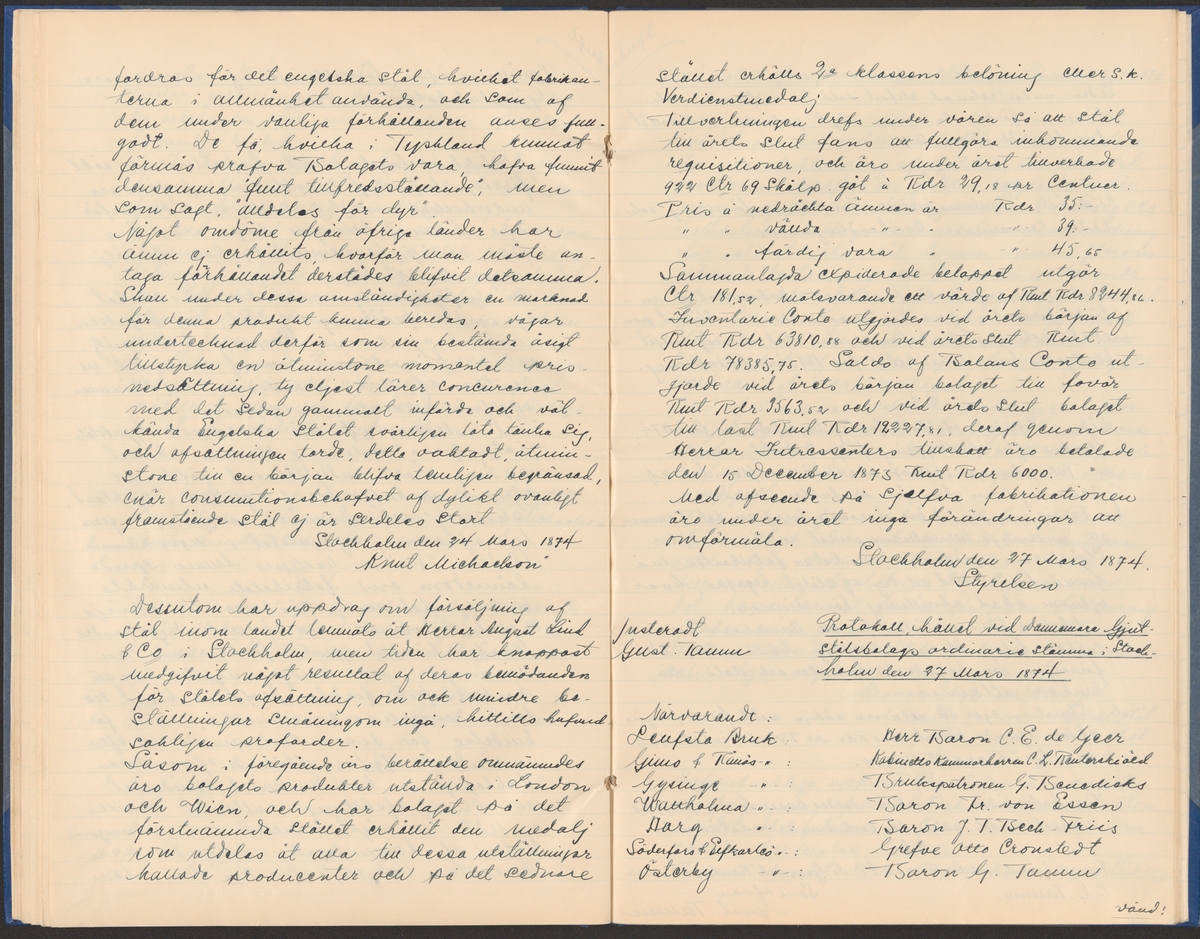 fordras för det engelska stål, hvilket fabrikan-
terna i allmänhet använda, och som af
dem under vanliga förhållanden anses full-
godt. De få, hvilka i Tyskland kunnat
förmås prafva Bolagets vara, hafva funnit
densamma "fullt tillfredsställande", men
som sagt, "alldeles för dyr".
Något omdöme från öfriga länder har
ännu ej erhållits, hvarför man måste an-
taga förhållandet derstädes blifvit detsamma.
Skall under dessa omständigheter en marknad
för denna produkt kunna beredas, vågar
undertecknad derför som sin bestämda åsigt
tillstyrka en åtminstone momentel pris-
nedsättning, ty eljest lärer concurence
med det sedan gammalt införda och väl-
kända Engelska stålet svårligen låta tänka sig,
och afsättningen torde, detta oaktadt, åtmin-
stone till en början blifva temligen begränsad,
enär consumtionsbehofvet af dylikt ovanligt
framstående stål ej är serdeles stort
Stockholm den 24 Mars 1874
Knut Michaelson"
Dessutom har uppdrag om försäljning af
stål inom landet lemnats åt Herrar August Lind
& Co i Stockholm, men tiden har knappast
medgifvit något resultat af deras bemödanden
för stålets afsättning, om ock mindre be-
ställningar småningom ingå, hittills hufvud-
sakligen proforder.
Såsom i föregående års berättelse omnämndes
äro bolagets produkter utstälda i London
och Wien, och har bolaget på det
förstnämnda stället erhållit den medalj
som utdelas åt alla till dessa utställningar
kallade producenter och på det sednare
stället erhålls 2a klassens belöning eller s.k.
Verdienstmedalj
Tillverkningen drefs under våren så att stål
till årets slut fans att fullgöra inkommande
requisitioner, och äro under året tillverkade
922 Ctr 69 Skålp. göt à Rdr 29,18 pr Centner.
Pris å nedräckta ämnen är Rdr 35:-
" " vällda " " " 39:-
" " färdig vara " " 45,65
Sammanlagda expiderade beloppet utgör
Ctr 181,52, motsvarande ett värde af Rmt Rdr 8244,86.
Inventarie Conto utgjordes vid årets början af
Rmt Rdr 63810,88 och vid årets slut Rmt
Rdr 78385,75. Saldo af Balans Conto ut-
gjorde vid årets början bolaget till favör
Rmt Rdr 3563,52 och vid årets slut bolaget
till last Rmt Rdr 12227,81, deraf genom
Herrar Intressenters tillskott äro betalade
den 15 December 1873 Rmt Rdr 6000.
Med afseende på sjelfva fabrikationen
äro under året inga förändringar att
omförmäla.
Stockholm den 27 Mars 1874.
Styrelsen
Justeradt
Gust. Tamm
Protokoll, hållet vid Dannemora Gjut-
stålsbolags ordinarie stämma i Stock-
holm den 27 Mars 1874
Närvarande:
Leufsta Bruk: Herr Baron C. E. de Geer
Gimo & Rånäs " : Kabinetts Kammarherren C. L. Reuterskiöld
Gysinge " : Brukspatronen G. Benedicks
Wattholma " : Baron Fr. von Essen
Harg " : Baron J. T. Beck-Friis
Söderfors & Elfkarleö " : Grefve Otto Cronstedt
Österby " : Baron G. Tamm
vänd!